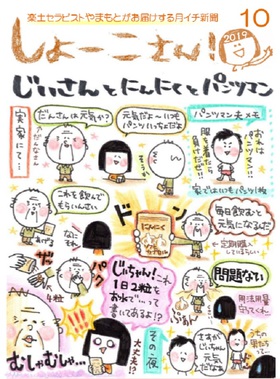 楽土セラピストやまもとがお届けする月イチ新聞
しょーこさん!
2019
10
じいさんとにんにくとパンツマン
実家にて…
だんさんは元気か?
元気だよ〜いつも
パンツいっちだよ
パンツマン夫メモ
おれは
パンツマン!!
服を着たら
負けだぜ!!
家ではいつもパンツ1枚
これを飲んで
もらいんさい
なにそれ
ドン
にんにく
毎日飲むと
元気になるんだ
定期購入
してるらしい
ザラ
4粒
パク
じいちゃん!これ
1日2粒を
お水で…って
書いてあるよ!?
問題ない
用法用量
守ってくれ
むしゃむしゃ…
大丈夫!?
その夜
さすが
じいちゃん…
元気
だなぁ